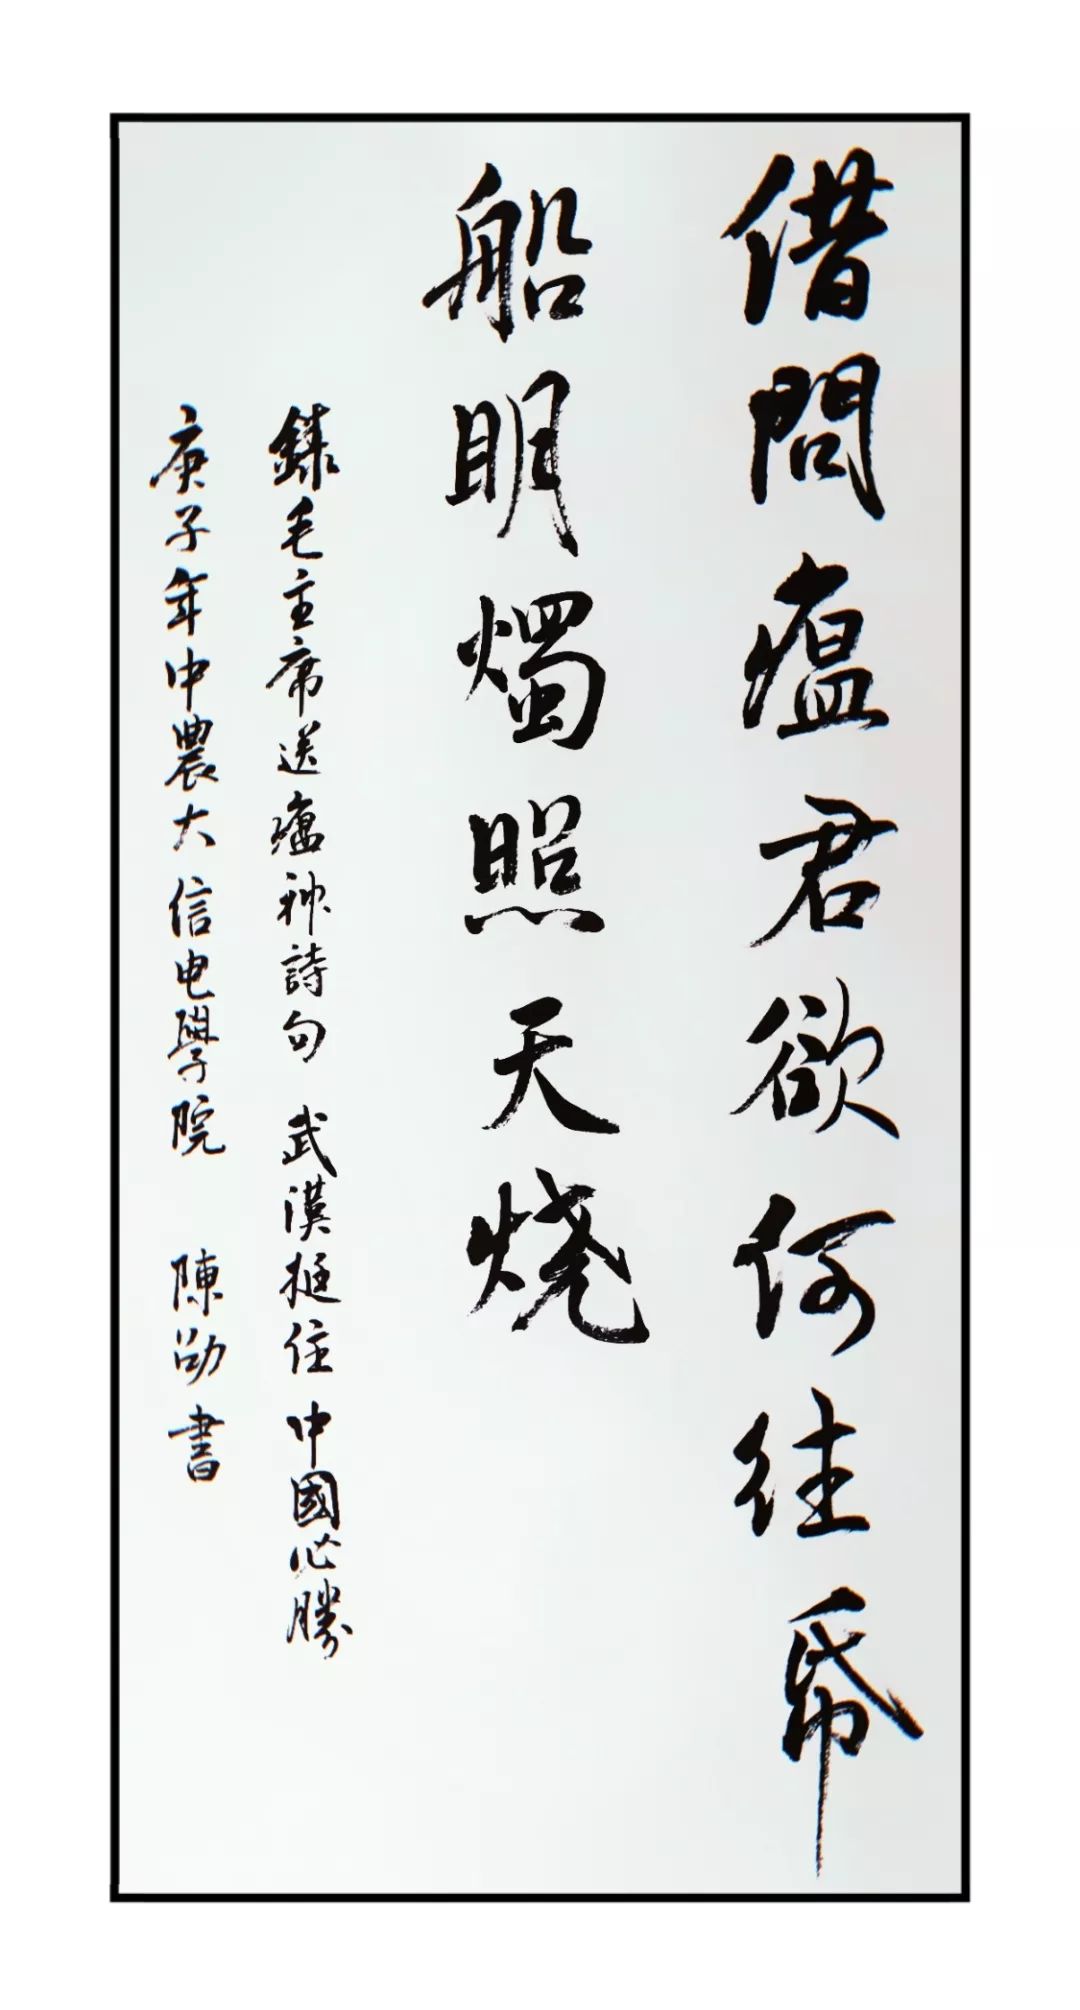 借問瘟君欲何往帋
船明燭照天烧
錄毛主席送瘟神詩句 武漢挺住 中國必勝
庚子年中農大信电學院 陳劭書